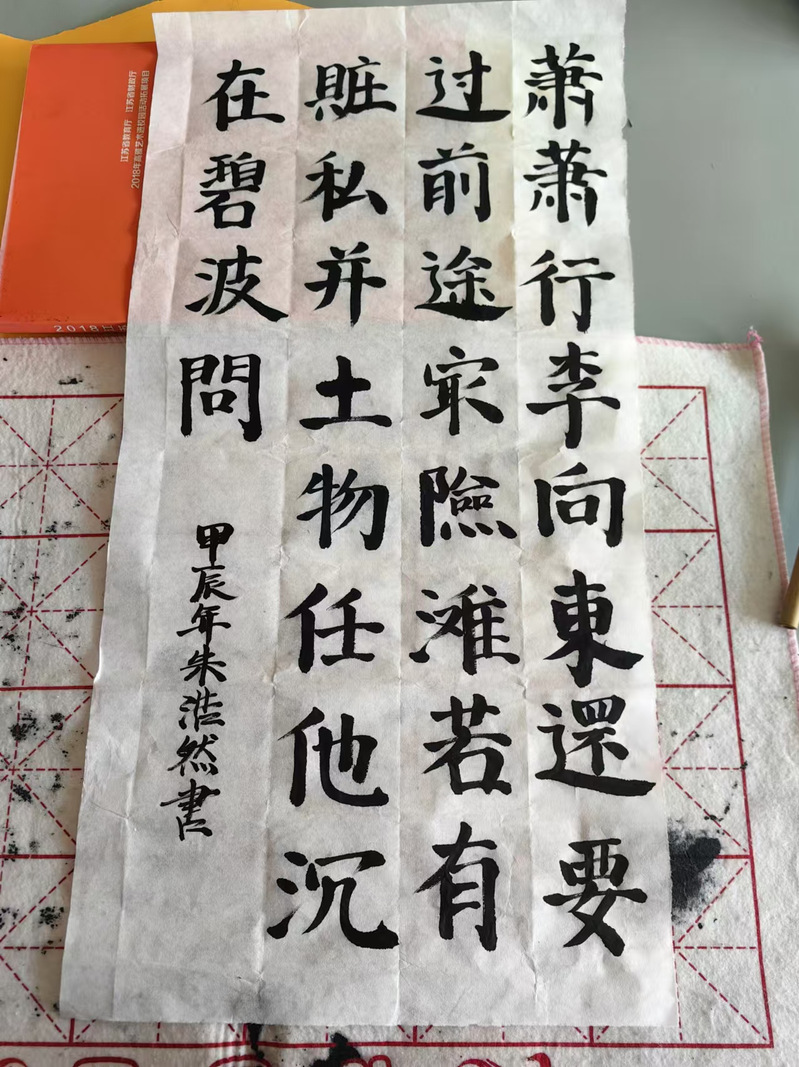 萧萧行李向東還要
过前途㝡險滩若有
赃私并土物任他沉
在碧波問
甲辰年朱浩然書
江苏省教育厅 江苏省财政厅
2018年高雅艺术进校园活动拓展项目